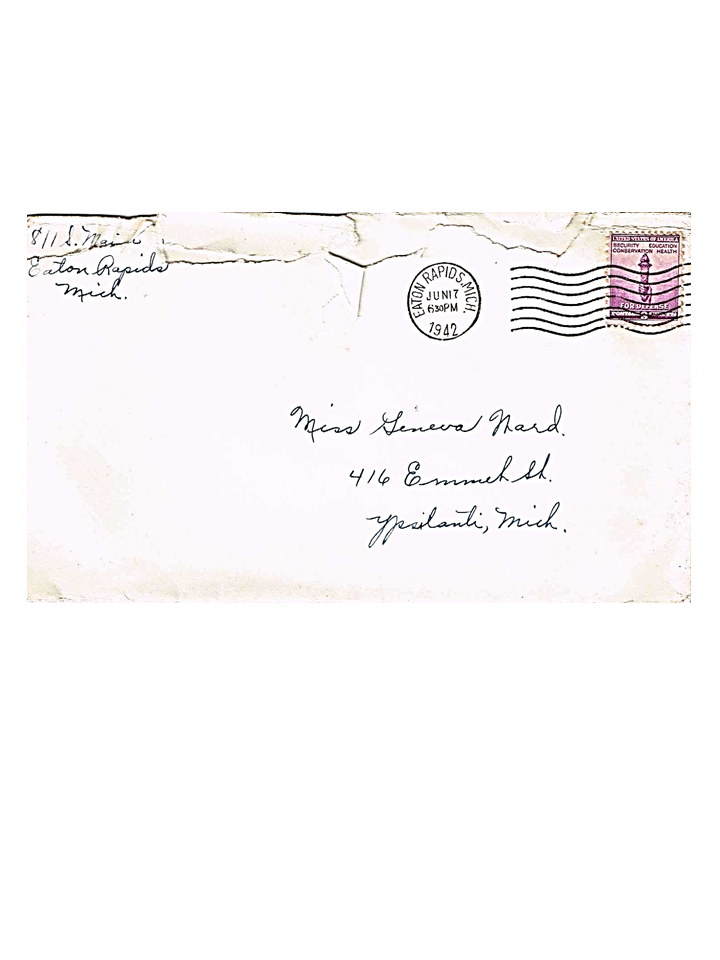 811 S. Main
Eaton Rapids
Mich.
EATON RAPIDS, MICH.
JUN 17
630PM
1942
UNITED STATES OF AMERICA
SECURITY EDUCATION
CONSERVATION HEALTH
FOR DEFENSE
Miss Geneva Nard.
416 Emmet St.
Ypsilanti, Mich.